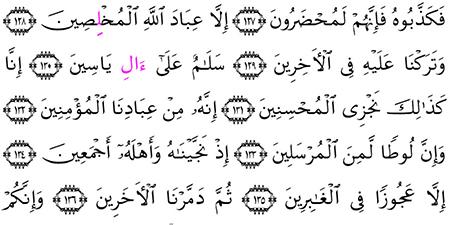 فَكَذَّبُوهُ فَإِنَّهُمْ لَمُحْضَرُونَ ١٢٧ إِلَّا عِبَادَ ٱللَّهِ ٱلْمُخْلِصِينَ ١٢٨
وَتَرَكْنَا عَلَيْهِ فِى ٱلْأَخِرِينَ ١٢٩ سَلَٰمٌ عَلَىٰٓ ءَالِ يَاسِينَ ١٣٠ إِنَّا
كَذَٰلِكَ نَجْزِى ٱلْمُحْسِنِينَ ١٣١ إِنَّهُۥ مِنْ عِبَادِنَا ٱلْمُؤْمِنِينَ ١٣٢
وَإِنَّ لُوطًا لَّمِنَ ٱلْمُرْسَلِينَ ١٣٣ إِذْ نَجَّيْنَٰهُ وَأَهْلَهُۥٓ أَجْمَعِينَ ١٣٤
إِلَّا عَجُوزًا فِى ٱلْغَٰبِرِينَ ١٣٥ ثُمَّ دَمَّرْنَا ٱلْأَخَرِينَ ١٣٦ وَإِنَّكُمْ